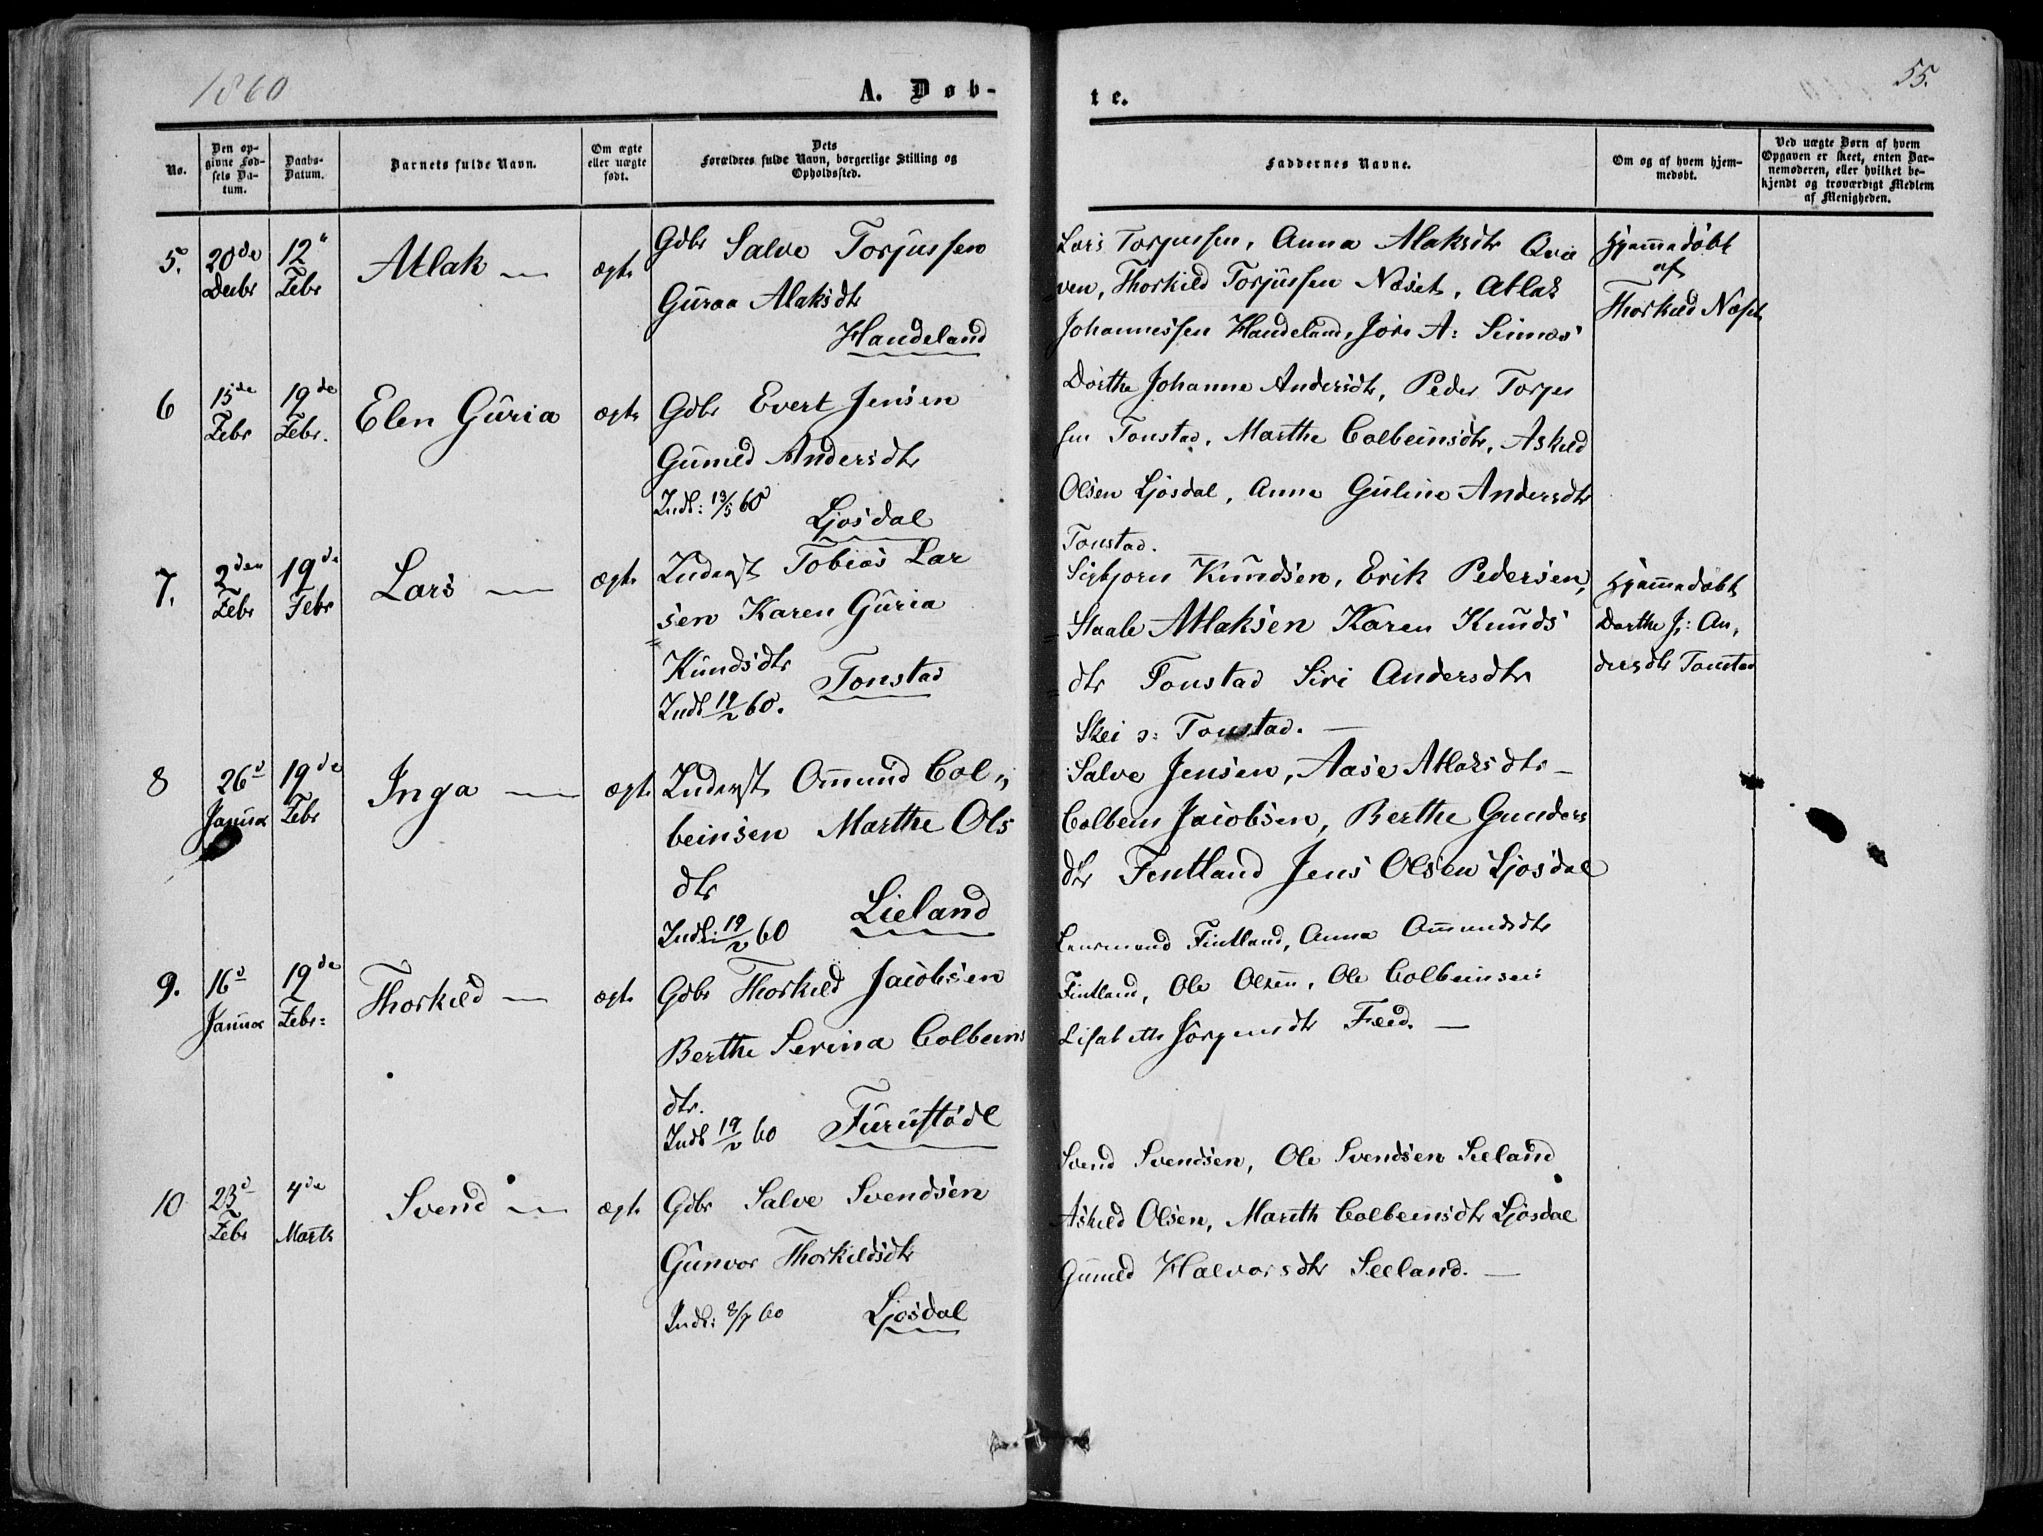 1860
A. Døb-
te.
55.
No.
Den op-
givne Fød-
sels Da-
tum.
Daabs-
Datum.
Barnets fulde Navn.
Om ægte
eller uægte
født.
Dets
Forældres fulde Navn, borgerlige Stilling og
Opholdssted.
Faddernes Navne.
Om og af hvem hjem-
medøbt.
Ved uægte Børn af hvem
Opgaven er skeet, enten Bar-
nemoderen, eller hvilket be-
kjendt og troværdigt Medlem
af Menigheden.
5.
20de
Decbr
12"
Febr
Atlak
ægte
Gdbr Salve Torjussen
Guroa Alaksdtr
Haudeland
Lars Torjussen, Anna Alaksdtr Qvi
ven, Thorkild Torjussen Næset, Atlak
Johannessen Haudeland, Jore A: Sinnes
Hjemmedøbt
af
Thorkild Næset
6
15de
Febr
19de
Febr.
Elen Guria
ægte
Gdbr Evert Jensen
Gunild Andersdtr
Indl: 13/5 60
Ljosdal
Dorthe Johanne Andersdtr, Peder Torjus
sen Tonstad, Marthe Colbeinsdtr, Askild
Olsen Ljosdal, Anne Guline Andersdtr
Tonstad.
7.
2den
Febr
19de
Febr
Lars
ægte
Inderst Tobias Lar
sen Karen Guria
Knudsdtr
Indl 19/2 60.
Tonstad
Sigbjorn Knudsen, Erik Pedersen,
Staale Atlaksen Karen Knuds
dtr Tonstad Siri Andersdtr
Skei s: Tonstad.
Hjemmedøbt
Dorthe J: An,
dersdtr Tonstad
8
26d
Januar
19de
Febr
Inga
ægte
Inderst Ommund Col,,
beinsen Marthe Ols
dtr
Indl: 19/2 60
Lieland
Salve Jensen, Aase Atlaksdtr
Colbein Jacobsen, Berthe Gunders
dtr Fintland Jens Olsen Ljosdal
9.
16d
Januar
19de
Febr:
Thorkild
ægte
Gdbr Thorkild Jacobsen
Berthe Serina Colbeins
dtr.
Indl 19/2 60
Furustødl
Lensmand Fintland, Anna Ommundsdtr
Fintland, Ole Olsen, Ole Colbeinsen
Lisabeth Jørgensdtr Fæd.
10
23d
Febr
4de
Marts
Svend
ægte
Gdbr Salve Svendsen
Gunvor Thorkildsdtr
Indl: 8/7 60
Ljosdal
Svend Svendsen, Ole Svendsen Seeland
Askild Olsen, Mareth Colbeinsdtr Ljosdal
Gunild Halvorsdtr Seeland.